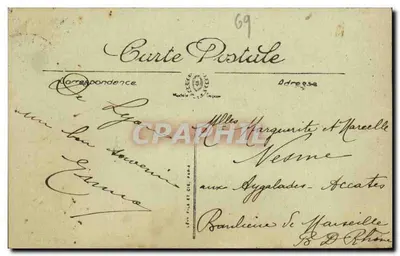 69
Carte Postale
Correspondence
Adresse
De Lyon
un bon souvenir
Emma
Mlles Marguerite et Marcelle
Nesme
aux Aygalades - Accates
Banlieue de Marseille
B. D. Rhône
CPAPHIL